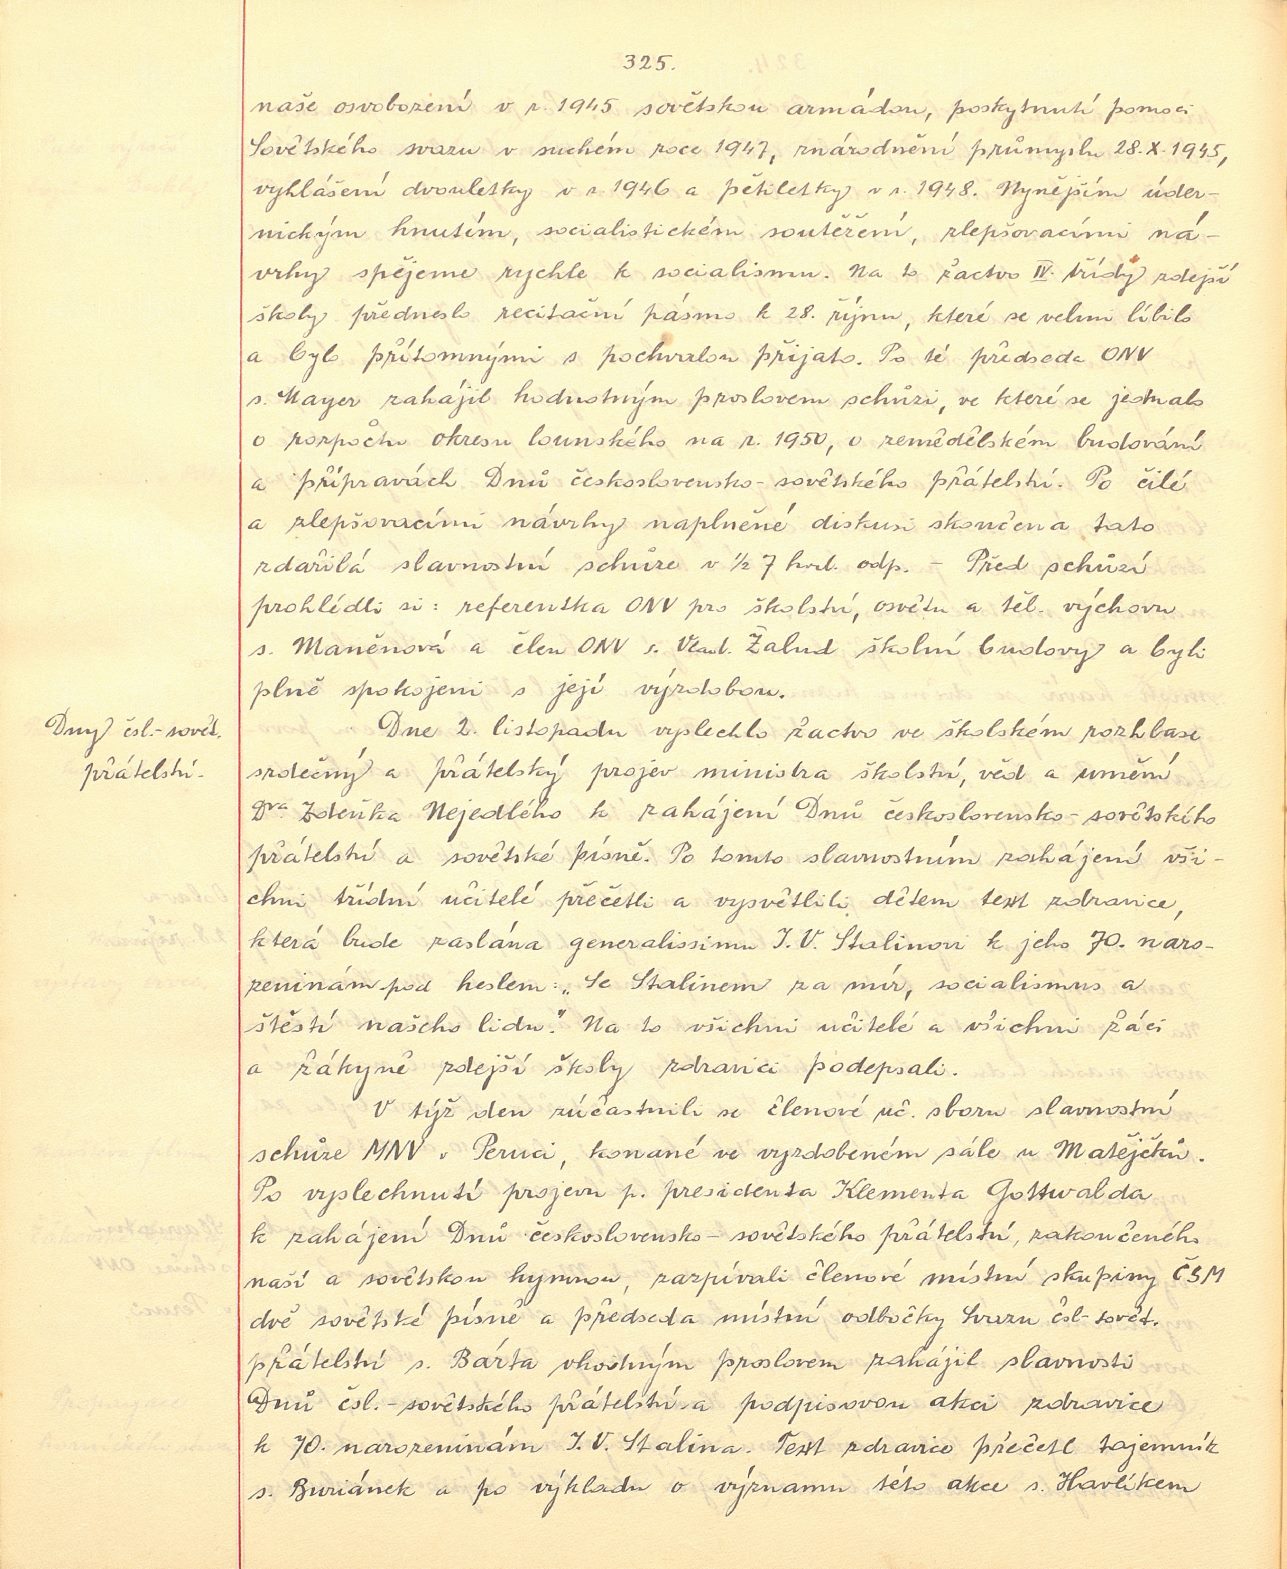 325.
naše osvobození v r. 1945 sovětskou armádou, poskytnutí pomoci
Sovětského svazu v suchém roce 1947, znárodnění průmyslu 28.X.1945,
vyhlášení dvouletky v r. 1946 a pětiletky v r. 1948. Nynějším úder-
nickým hnutím, socialistickém soutěžení, zlepšovacími ná-
vrhy spějeme rychle k socialismu. Na to žactvo IV. třídy zdejší
školy předneslo recitační pásmo k 28. říjnu, které se velmi líbilo
a bylo přítomnými s pochvalou přijato. Po té předseda ONV
s. Mayer zahájil hodnotným proslovem schůzi, ve které se jednalo
o rozpočtu okresu lounského na r. 1950, o zemědělském budování
a přípravách Dnů československo-sovětského přátelství. Po čilé
a zlepšovacími návrhy naplněné diskusi skončena tato
zdařilá slavnostní schůze v ½ 7 hod. odp. - Před schůzí
prohlédli si: referentka ONV pro školství, osvětu a těl. výchovu
s. Maněnová a člen ONV s. Vlad. Žalud školní budovy a byli
plně spokojeni s její výzdobou.
Dny čsl.-sovět.
přátelství.
Dne 2. listopadu vyslechlo žactvo ve školském rozhlase
srdečný a přátelský projev ministra školství, věd a umění
Dra Zdeňka Nejedlého k zahájení Dnů československo-sovětského
přátelství a sovětské písně. Po tomto slavnostním zahájení vši-
chni třídní učitelé přečetli a vysvětlili dětem text zdravice,
která bude zaslána generalissimu J. V. Stalinovi k jeho 70. naro-
zeninám pod heslem: „Se Stalinem za mír, socialismus a
štěstí našeho lidu." Na to všichni učitelé a všichni žáci
a žákyně zdejší školy zdravici podepsali.
V týž den zúčastnili se členové uč. sboru slavnostní
schůze MNV v Peruci, konané ve vyzdobeném sále u Matějčků.
Po vyslechnutí projevu p. presidenta Klementa Gottwalda
k zahájení Dnů československo-sovětského přátelství, zakončeného
naší a sovětskou hymnou, zazpívali členové místní skupiny ČSM
dvě sovětské písně a předseda místní odbočky Svazu čsl-sovět.
přátelství s. Bárta vhodným proslovem zahájil slavnosti
Dnů čsl.-sovětského přátelství a podpisovou akci zdravice
k 70. narozeninám J. V. Stalina. Text zdravice přečetl tajemník
s. Buriánek a po výkladu o významu této akce s. Havlíkem